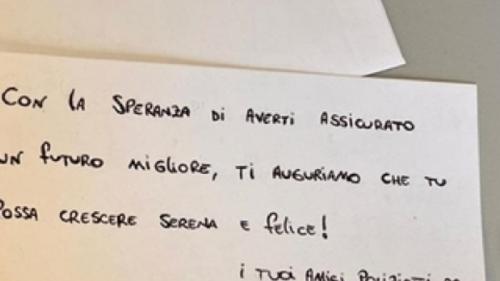 CON LA SPERANZA DI AVERTI ASSICURATO
UN FUTURO MIGLIORE, TI AUGURIAMO CHE TU
POSSA CRESCERE SERENA E FELICE!
I TUOI AMICI